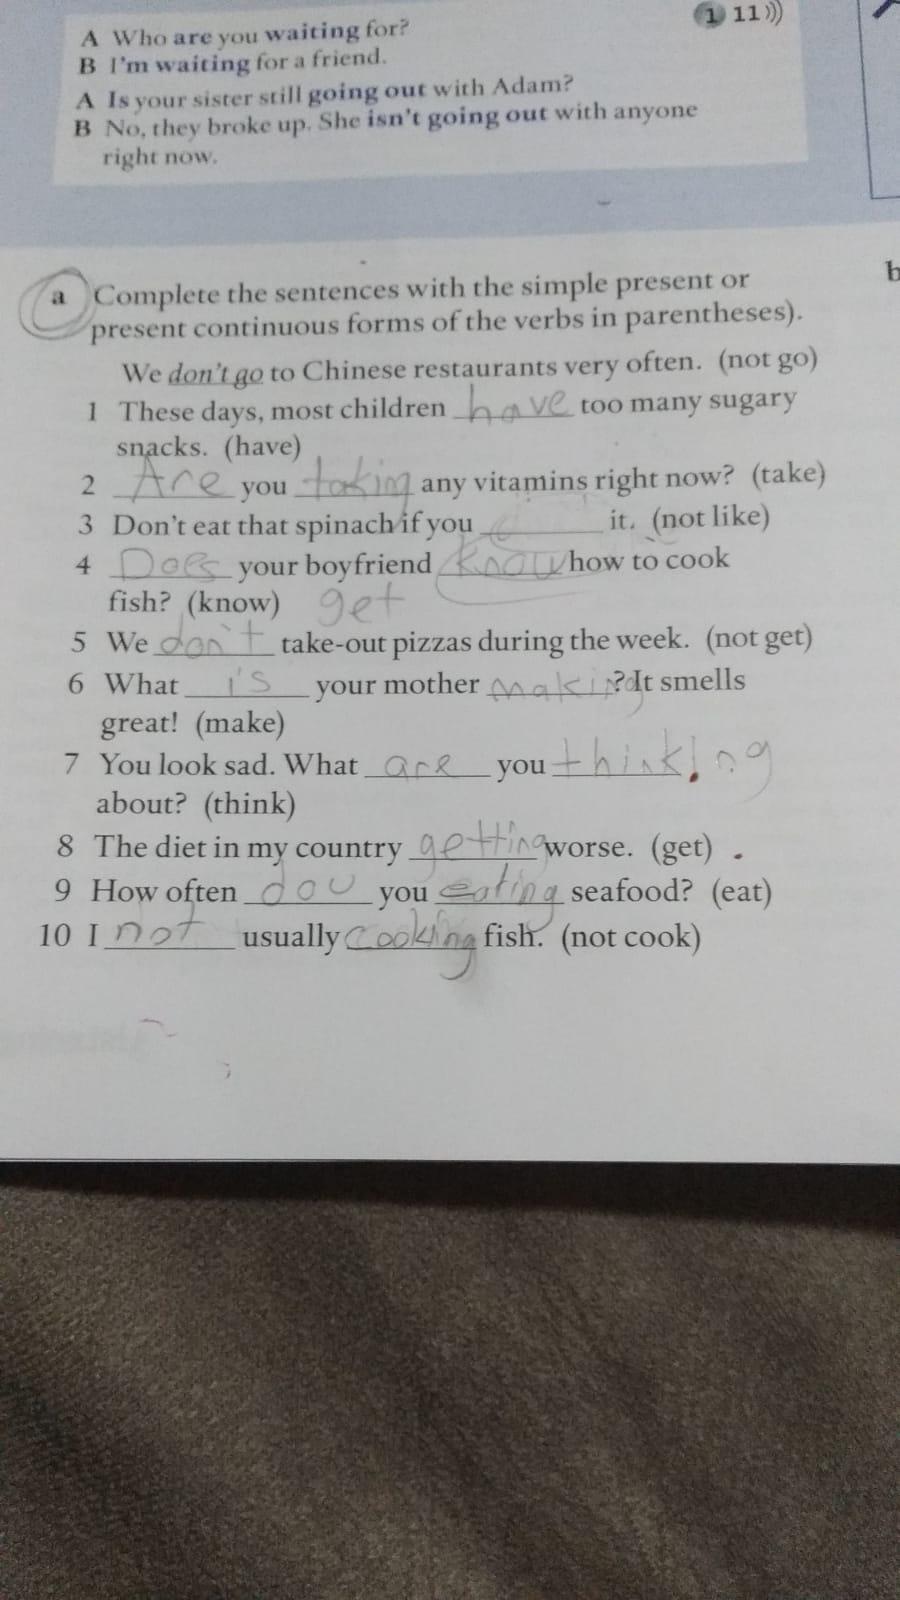 1 11
A Who are you waiting for?
B I'm waiting for a friend.
A Is your sister still going out with Adam?
B No, they broke up. She isn't going out with anyone
right now.
b
a Complete the sentences with the simple present or
present continuous forms of the verbs in parentheses).
We don't go to Chinese restaurants very often. (not go)
1 These days, most children have too many sugary
snacks. (have)
2 Are you taking any vitamins right now? (take)
3 Don't eat that spinach if you it. (not like)
4 Does your boyfriend know how to cook
fish? (know) get
5 We don't take-out pizzas during the week. (not get)
6 What is your mother making? It smells
great! (make)
7 You look sad. What are you thinking
about? (think)
8 The diet in my country getting worse. (get)
9 How often dou you eating seafood? (eat)
10 I not usually cooking fish. (not cook)